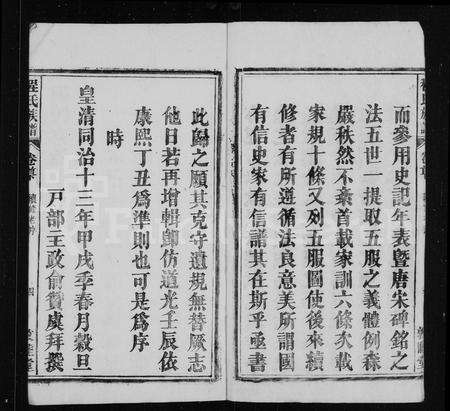 而參用史記年表暨唐宋碑銘之
法五世一提取五服之義體例森
嚴秩然不紊首載家訓六條次載
家規十條又列五服圖使後來續
修者有所遵循法良意美所謂國
有信史家有信譜其在斯乎亟書
此歸之願其克守遺規無替厥志
他日若再增輯卽仿道光壬辰依
康熙丁丑爲準則也可是爲序
時
皇清同治十三年甲戌季春月穀旦
戸部主政俞贊虞拜撰
程氏族譜